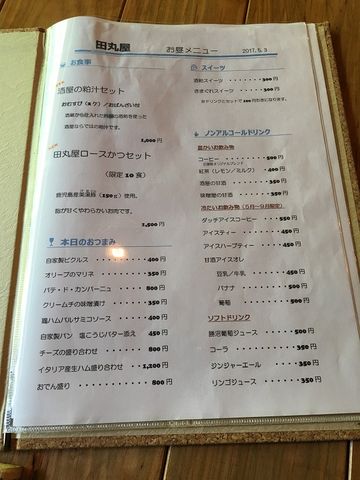 田丸屋 お昼メニュー 2017.5.3
お食事
酒屋の粕汁セット
おむすび(2ケ)/おばんざい付
酒屋ならではの粕汁です。
1,000円
田丸屋ロースかつセット
(限定10食)
鹿児島産茶美豚(150g)使用。
脂が甘くやわらかいお肉です。
1,500円
本日のおつまみ
自家製ピクルス ・・・・・・ 400円
オリーブのマリネ ・・・・・・ 350円
パテ・ド・カンパーニュ ・・・・ 800円
クリームチの味噌漬け ・・・・ 350円
鴨ハムバルサミコソース ・・・ 400円
自家製パン 塩こうじバター添え 450円
チーズの盛り合わせ ・・・・・ 800円
イタリア産生ハム盛り合わせ ・・ 1,200円
おでん盛り ・・・・・・・・ 800円
スイーツ
酒粕スイーツ ・・・・・・・ 300円
きまぐれスイーツ ・・・・・ 300円
※ドリンクとセットで100円引きになります。
ノンアルコールドリンク
温かいお飲み物
コーヒー ・・・・・・・・ 500円
紅茶(レモン/ミルク) ・・・ 400円
酒屋の甘酒 ・・・・・・・ 350円
味噌屋の甘酒 ・・・・・・ 350円
冷たいお飲み物(5月~9月限定)
ダッチアイスコーヒー ・・・ 550円
アイスティー ・・・・・・ 450円
アイスハーブティー ・・・・ 450円
甘酒アイスオレ
豆乳/牛乳 ・・・・・ 450円
バナナ ・・・・・・・ 500円
葡萄 ・・・・・・・・ 500円
ソフトドリンク
勝沼葡萄ジュース ・・・・ 500円
コーラ ・・・・・・・・ 350円
ジンジャーエール ・・・・ 350円
リンゴジュース ・・・・・ 350円